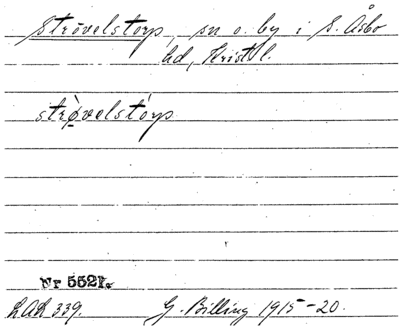 Strövelstorp, sn o. by i S. Åsbo
hd, Krist. l.
strø̀velstórp
Nr 5521.
LAL 339. G. Billing 1915-20.